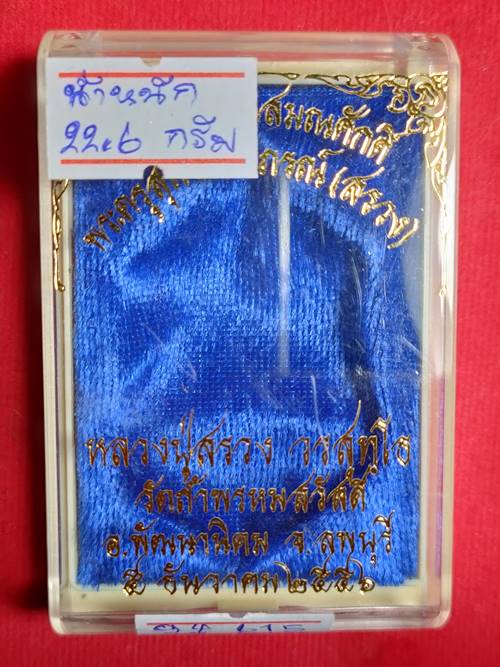 น้ำหนัก
22.6 กรัม
สมณศักดิ์
(สรวง)
หลวงปู่สรวง วรสุทฺโธ
วัดถ้ำพรหมสวัสดิ์
อ.พัฒนานิคม จ.ลพบุรี
๕ ธันวาคม ๒๕๕๖